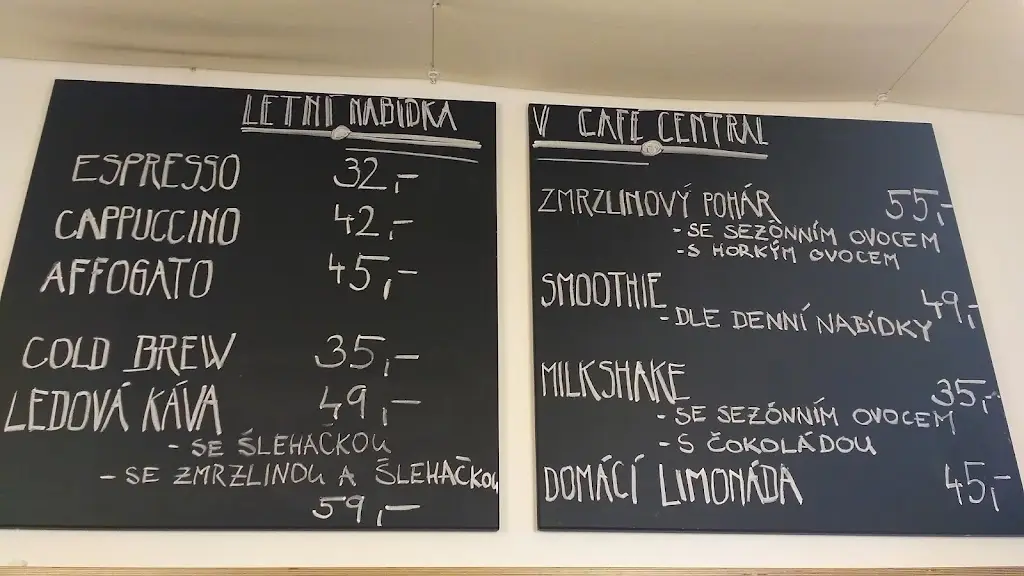 LETNÍ NABÍDKA
ESPRESSO 32,-
CAPPUCCINO 42,-
AFFOGATO 45,-
COLD BREW 35,-
LEDOVÁ KÁVA 49,-
- SE ŠLEHAČKOU
- SE ZMRZLINOU A ŠLEHAČKOU
59,-
V CAFE CENTRAL
ZMRZLINOVÝ POHÁR 55,-
- SE SEZÓNNÍM OVOCEM
- S HORKÝM OVOCEM
SMOOTHIE 49,-
- DLE DENNÍ NABÍDKY
MILKSHAKE 35,-
- SE SEZÓNNÍM OVOCEM
- S ČOKOLÁDOU
DOMÁCÍ LIMONÁDA 45,-